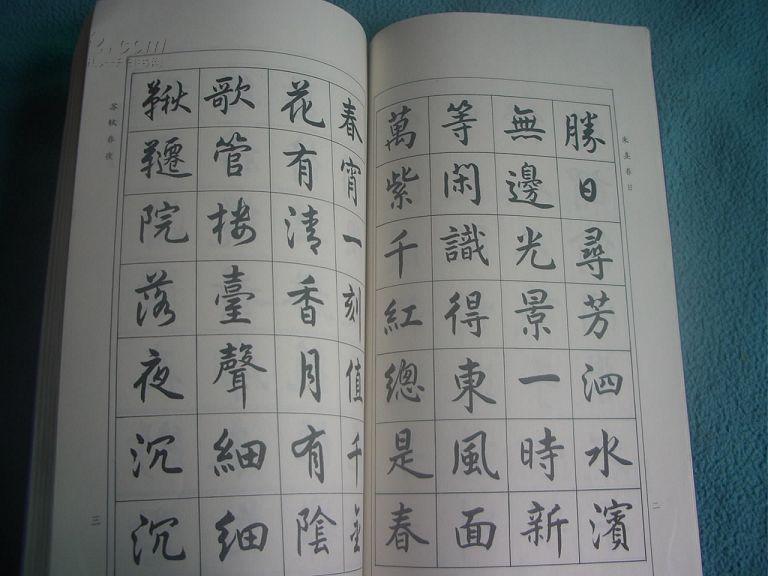 朱熹春日
勝日尋芳泗水濱
無邊光景一時新
等閑識得東風面
萬紫千紅總是春
二
春宵一刻值千金
花有清香月有陰
歌管楼臺聲細細
鞦韆院落夜沉沉
蘇軾春夜
三
.com